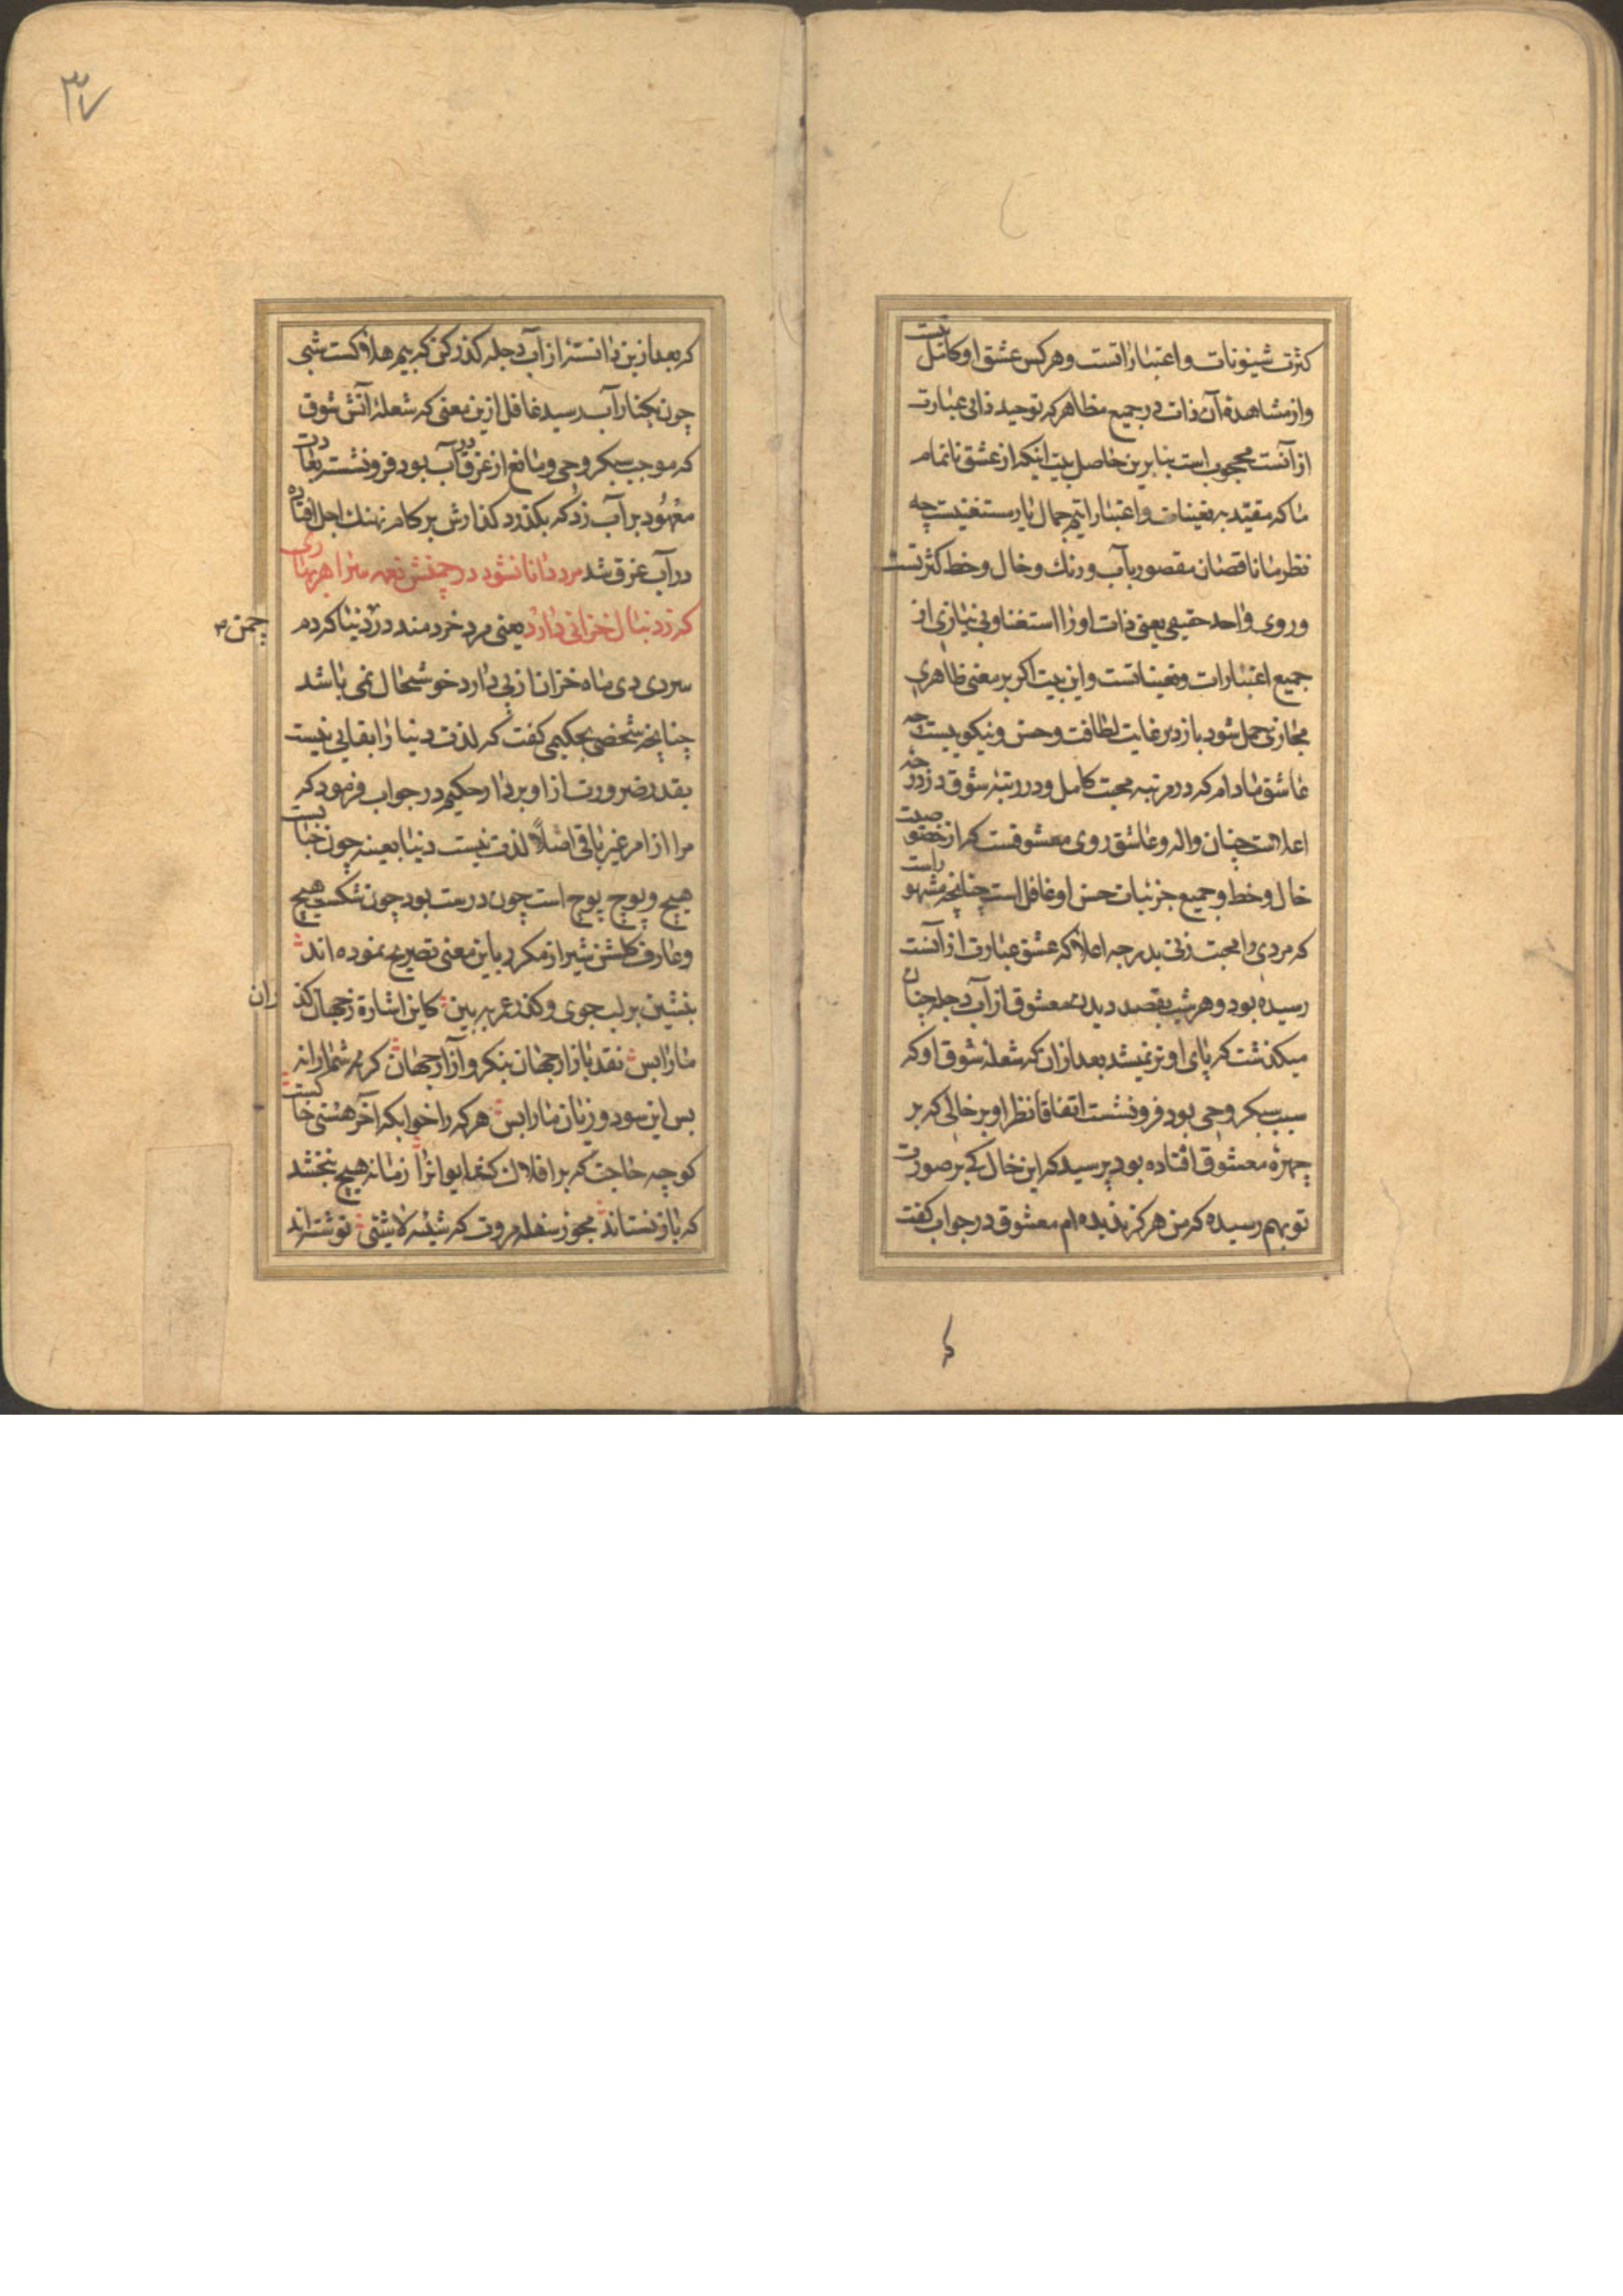 کثرت شیونات و اعتباراتست و هرکس عشق او کامل نیست
و از مشاهدهٔ آن ذات در جمیع مظاهر که توحید ذاتی عبارت
از آنست محجوب است بنابرین حاصل بیت اینکه از عشق ناتمام
ما که مقید به تعینات و اعتباراتیم جمال یار مستغنیست چه
نظر ما ناقصان مقصور بآب و رنك و خال و خط کثرتست
و روی واحد حقیقی یعنی ذات او را استغنا و بی نیازی از
جمیع اعتبارات و تعیناتست و این بیت اکر بر معنی ظاهری
مجازی حمل شود باز در غایت لطافت و حسن و نیکوییست چه
عاشق مادام که در مرتبه محبت کامل و در رتبه شوق در درجه
اعلاست چنان واله و عاشق روی معشوقست که از خصوصیت
خال و خط و جمیع جزئیات حسن او غافل است چنانچه مشهور است
که مردی را محبت زنی بدرجه اعلا که عشق عبارت از آنست
رسیده بود و هر شب بقصد دیدن معشوق از آب دجله چنان
میکذشت که پای او تر نمیشد بعد از ان که شعله شوق او که
سبب سبکروحی بود فرو نشست اتفاقا نظر او بر خالی که بر
چهرهٔ معشوق افتاده بود پرسید که این خال کی بر صورت
تو بهم رسیده که من هرکز ندیده ام معشوق در جواب کفت
که
۳۷
که بعد ازین دانستهٔ از آب دجله کذر کن که بیم هلاکست شبی
چون بکنار آب رسید غافل ازین معنی که شعلهٔ آتش شوق
که موجب سبکروحی و مانع از غرق در آب بود فرو نشسته بعادت
معهود بر آب زد که بکذرد کذارش بر کام نهنك اجل افتاده
در آب غرق شد مرد دانا نشود در چمنش نغمه سرا هر بهاری
که ز دنبال خزانی دارد یعنی مرد خردمند در دنیا که دم
چمن
سردی دی ماه خزان از پی دارد خوشحال نمی باشد
چنانچه شخصی بحکیمی کفت که لذت دنیا را بقایی نیست
بقدر ضرورت از او بردار حکیم در جواب فرمود که
مرا از امر غیر باقی اصلاً لذت نیست دنیا بعینه چون حبابست
هیچ و پوچ پوچ است چون درست بود چون شکست هیچ
و عارف کلشن شیراز مکرر باین معنی تصریح نموده اند
بنشین بر لب جوی و کذر عمر ببین کاین اشارة ز جهان کذران
ما را بس نقد بازار جهان بنکر و آزار جهان کر نه شما را نه
بس این سود و زیان ما را بس هر که را خوابکه آخر مشتی خاکست
کو چه حاجت که بر افلاك کشد ایوان را زمانه هیچ نبخشد
که باز نستاند مجوز سفله مروت که شیئه لاشیئی نوشته اند